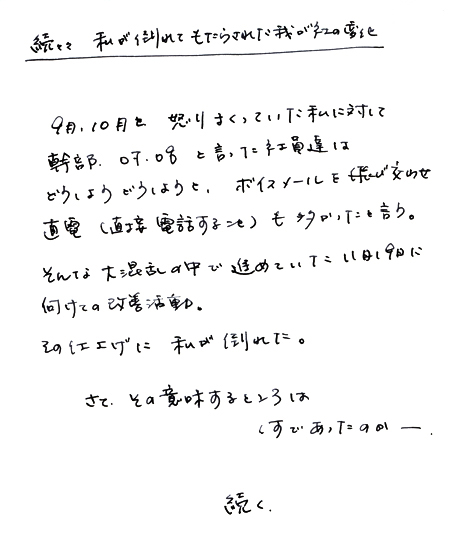 続々々 私が倒れてもたらされた我が社の変化
9月、10月と 怒りまくっていた私に対して
幹部、07、08 と言った社員達は
どうしようどうしようと、ボイスメールを飛び交わせ
直電（直接電話すること）も多かったと言う。
そんな大混乱の中で進めていた11月19日に
向けての改善活動。
その仕上げに 私が倒れた。
さて、その意味するところは
何であったのか ー。
続く。